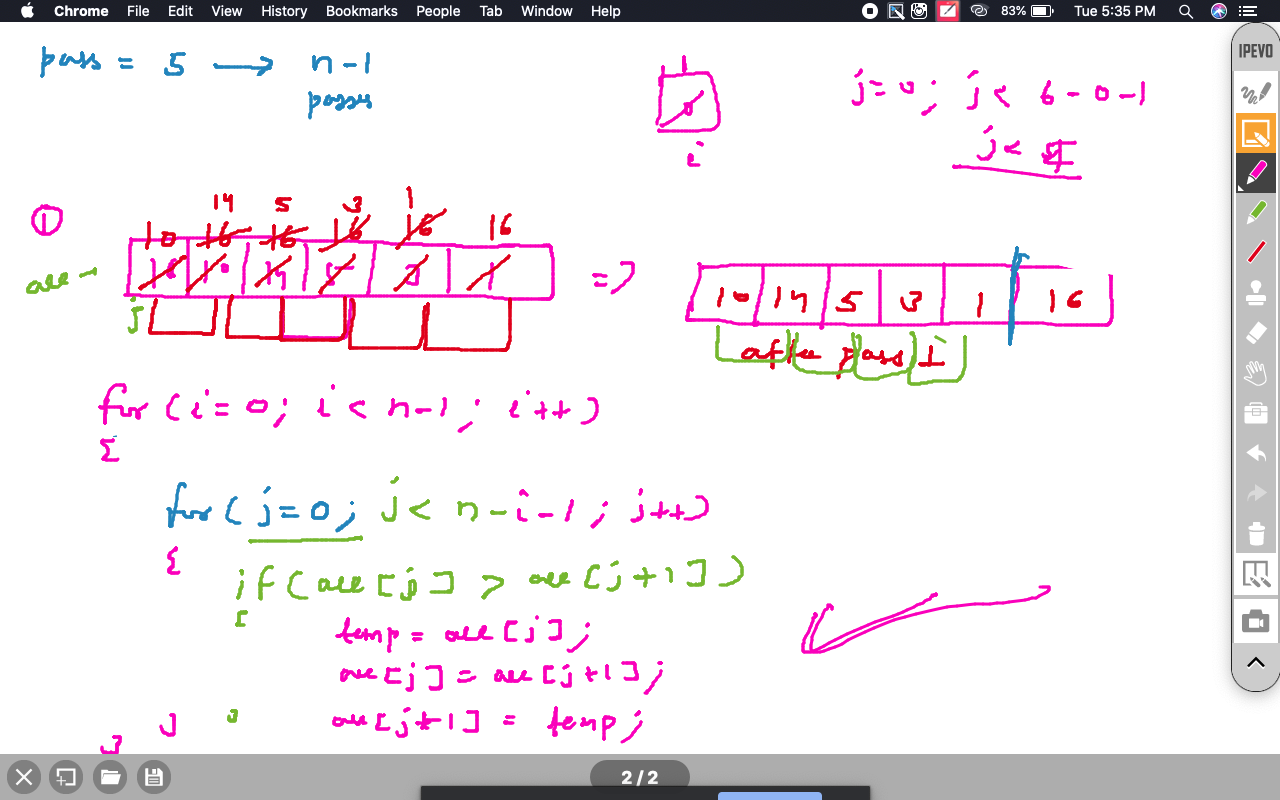 Chrome File Edit View History Bookmarks People Tab Window Help 83% Tue 5:35 PM
IPEVO
pass = 5 → n-1
passes
1
i
j=0; j< 6-0-1
j< 5
①
14 5 3 1
10 16 16 16 16 16
arr →
j
=> 10 14 5 3 1 16
after pass 1
for (i=0; i<n-1; i++)
{
for (j=0; j<n-i-1; j++)
{
if(arr[j] > arr[j+1])
{
temp = arr[j];
arr[j] = arr[j+1];
arr[j+1] = temp;
}
}
}
2 / 2